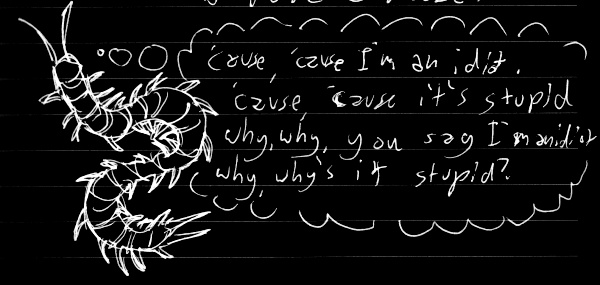 'cause, 'cause I'm an idiot.
'cause, 'cause it's stupid
why, why, you say I'm an idiot
why, why's it stupid?